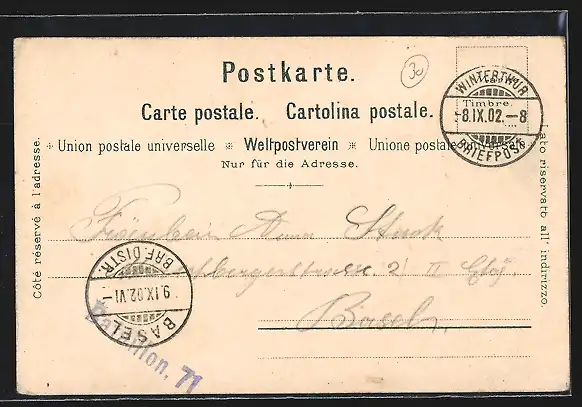 30
Postkarte.
Carte postale. Cartolina postale.
Union postale universelle Weltpostverein Unione postale universelle
Nur für die Adresse.
Côté réservé à l'adresse.
Lato riservato all' indirizzo.
Timbre.
WINTERTHUR
-8.IX.02.-8
BRIEFPOST
Fräulein Anna
2 II
Basel.
BRF. DISTR.
9.IX.02.VI-
BASEL
Bataillon. 71